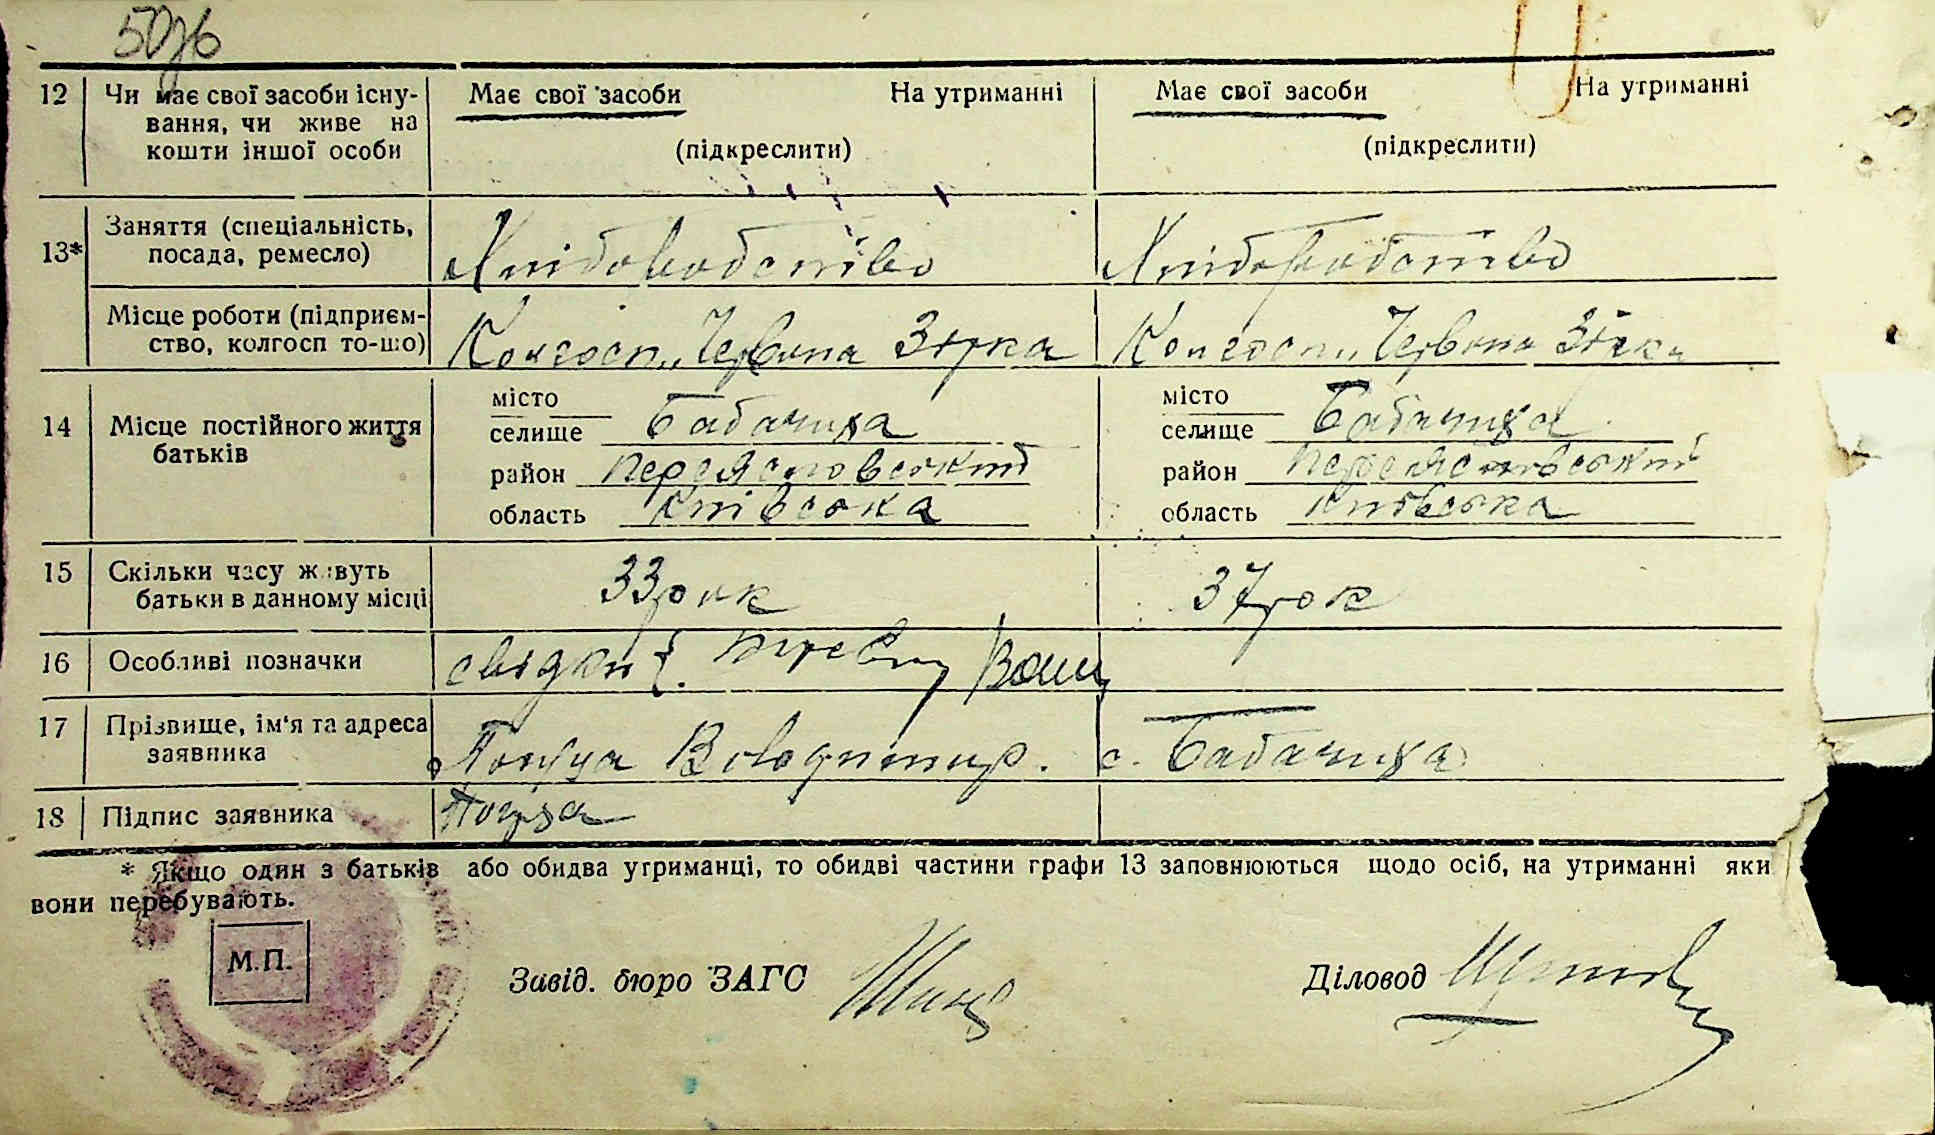 12 Чи має свої засоби існу-
вання, чи живе на
кошти іншої особи
Має свої засоби На утриманні
(підкреслити)
Має свої засоби На утриманні
(підкреслити)
13* Заняття (спеціальність,
посада, ремесло)
Хліборобство
Хліборобство
Місце роботи (підприєм-
ство, колгосп то-що)
Колгосп „Червона Зірка
Колгосп „Червона Зірка
14 Місце постійного життя
батьків
місто
селище Бабачиха
район Переяславський
область Київська
місто
селище Бабачиха
район Переяславський
область Київська
15 Скільки часу живуть
батьки в данному місці
33 рок
37 рок
16 Особливі позначки
свідки
17 Прізвище, ім'я та адреса
заявника
Володимир. с. Бабачиха
18 Підпис заявника
* Якщо один з батьків або обидва утриманці, то обидві частини графи 13 заповнюються щодо осіб, на утриманні яки
вони перебувають.
М.П.
Завід. бюро ЗАГС
Діловод